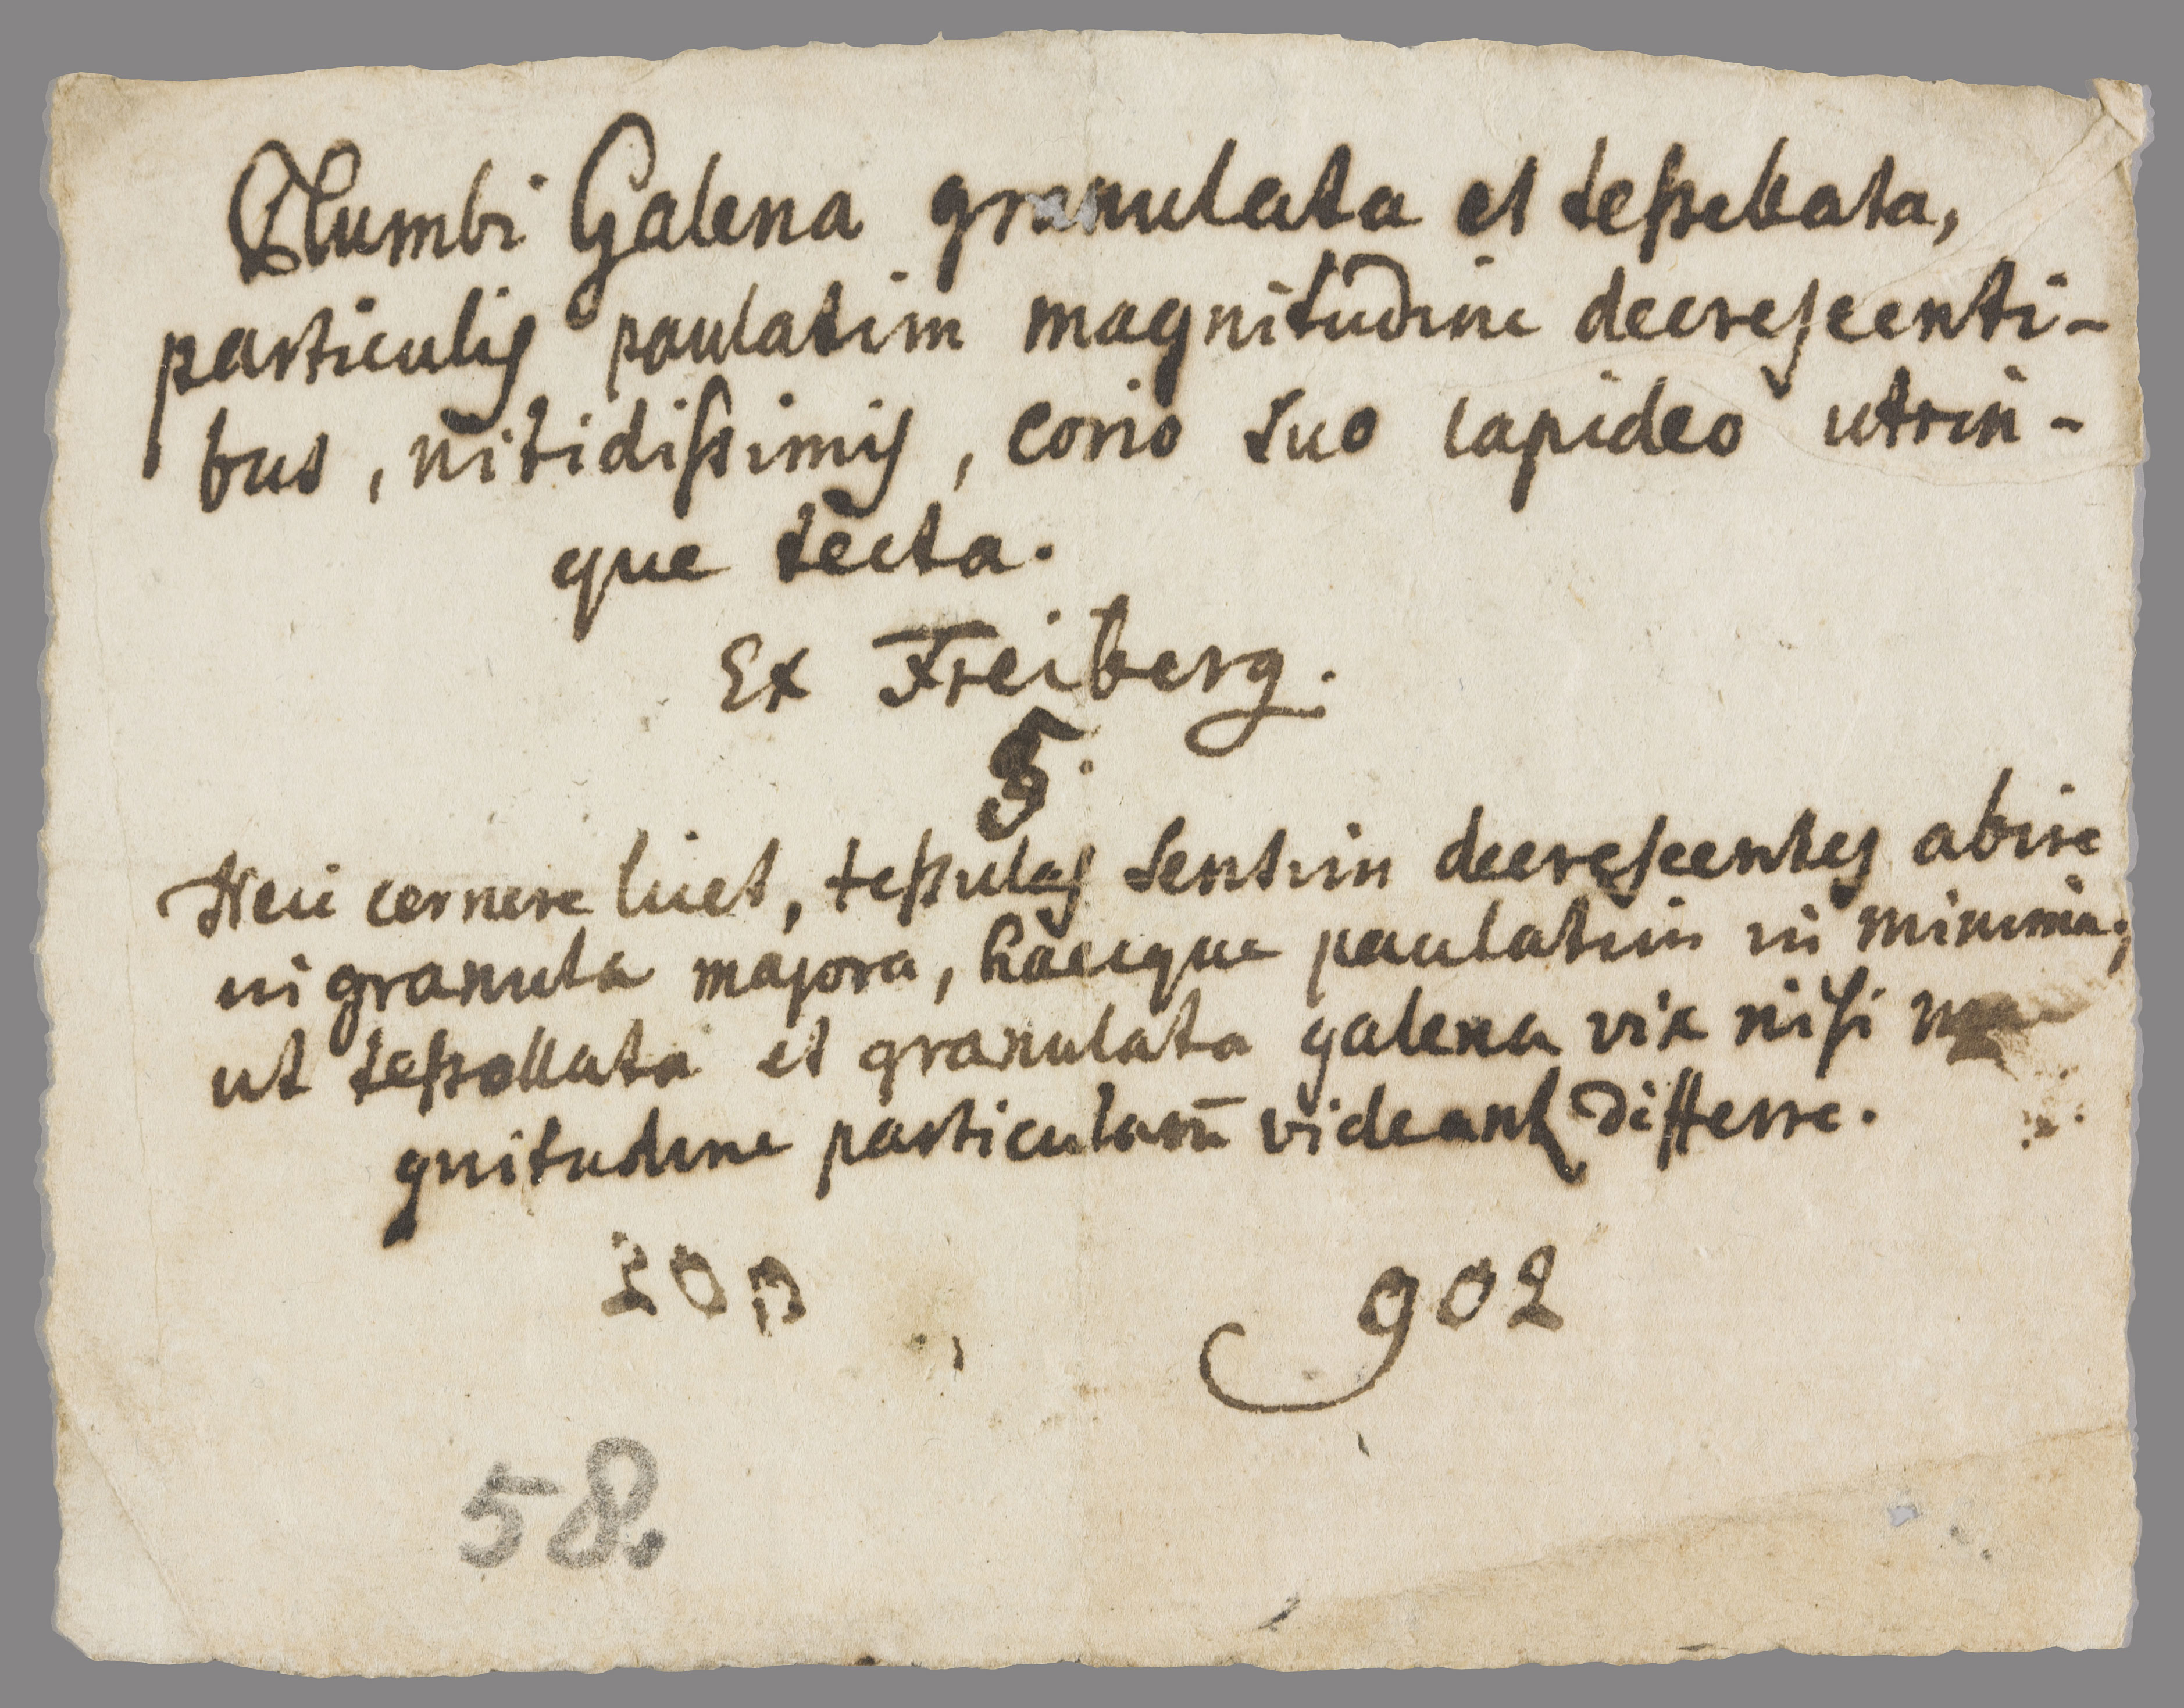 Plumbi Galena granulata et teſsellata,
particulis paulatim magnitudine decreſcenti-
bus, nitidiſsimis, corio suo lapideo utrin-
que tecta.
Ex Freiberg.
5.
Heic cernere licet, teſsulas sensim decreſcentes abire
in granula majora, haecque paulatim in minima;
ut teſsellata et granulata galena vix niſi ma
gnitudine particularū videantr differre.
902
58.